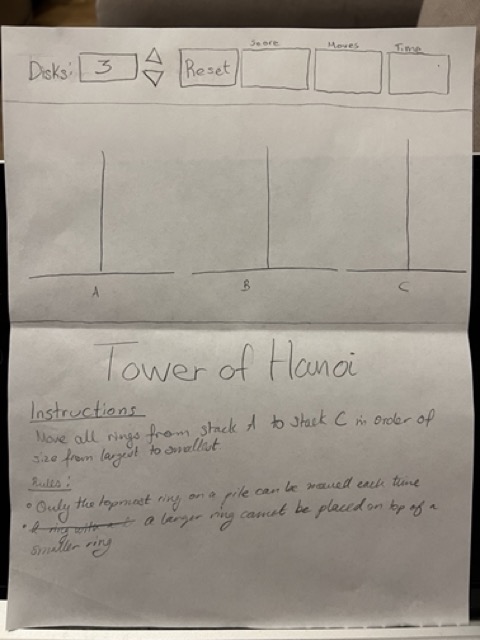 Score Moves Time
Disks: 3 Reset
A B C
Tower of Hanoi
Instructions
Move all rings from stack A to stack C in order of
size from largest to smallest.
Rules:
• Only the topmost ring on a pile can be moved each time
• A ring with a a larger ring cannot be placed on top of a
smaller ring